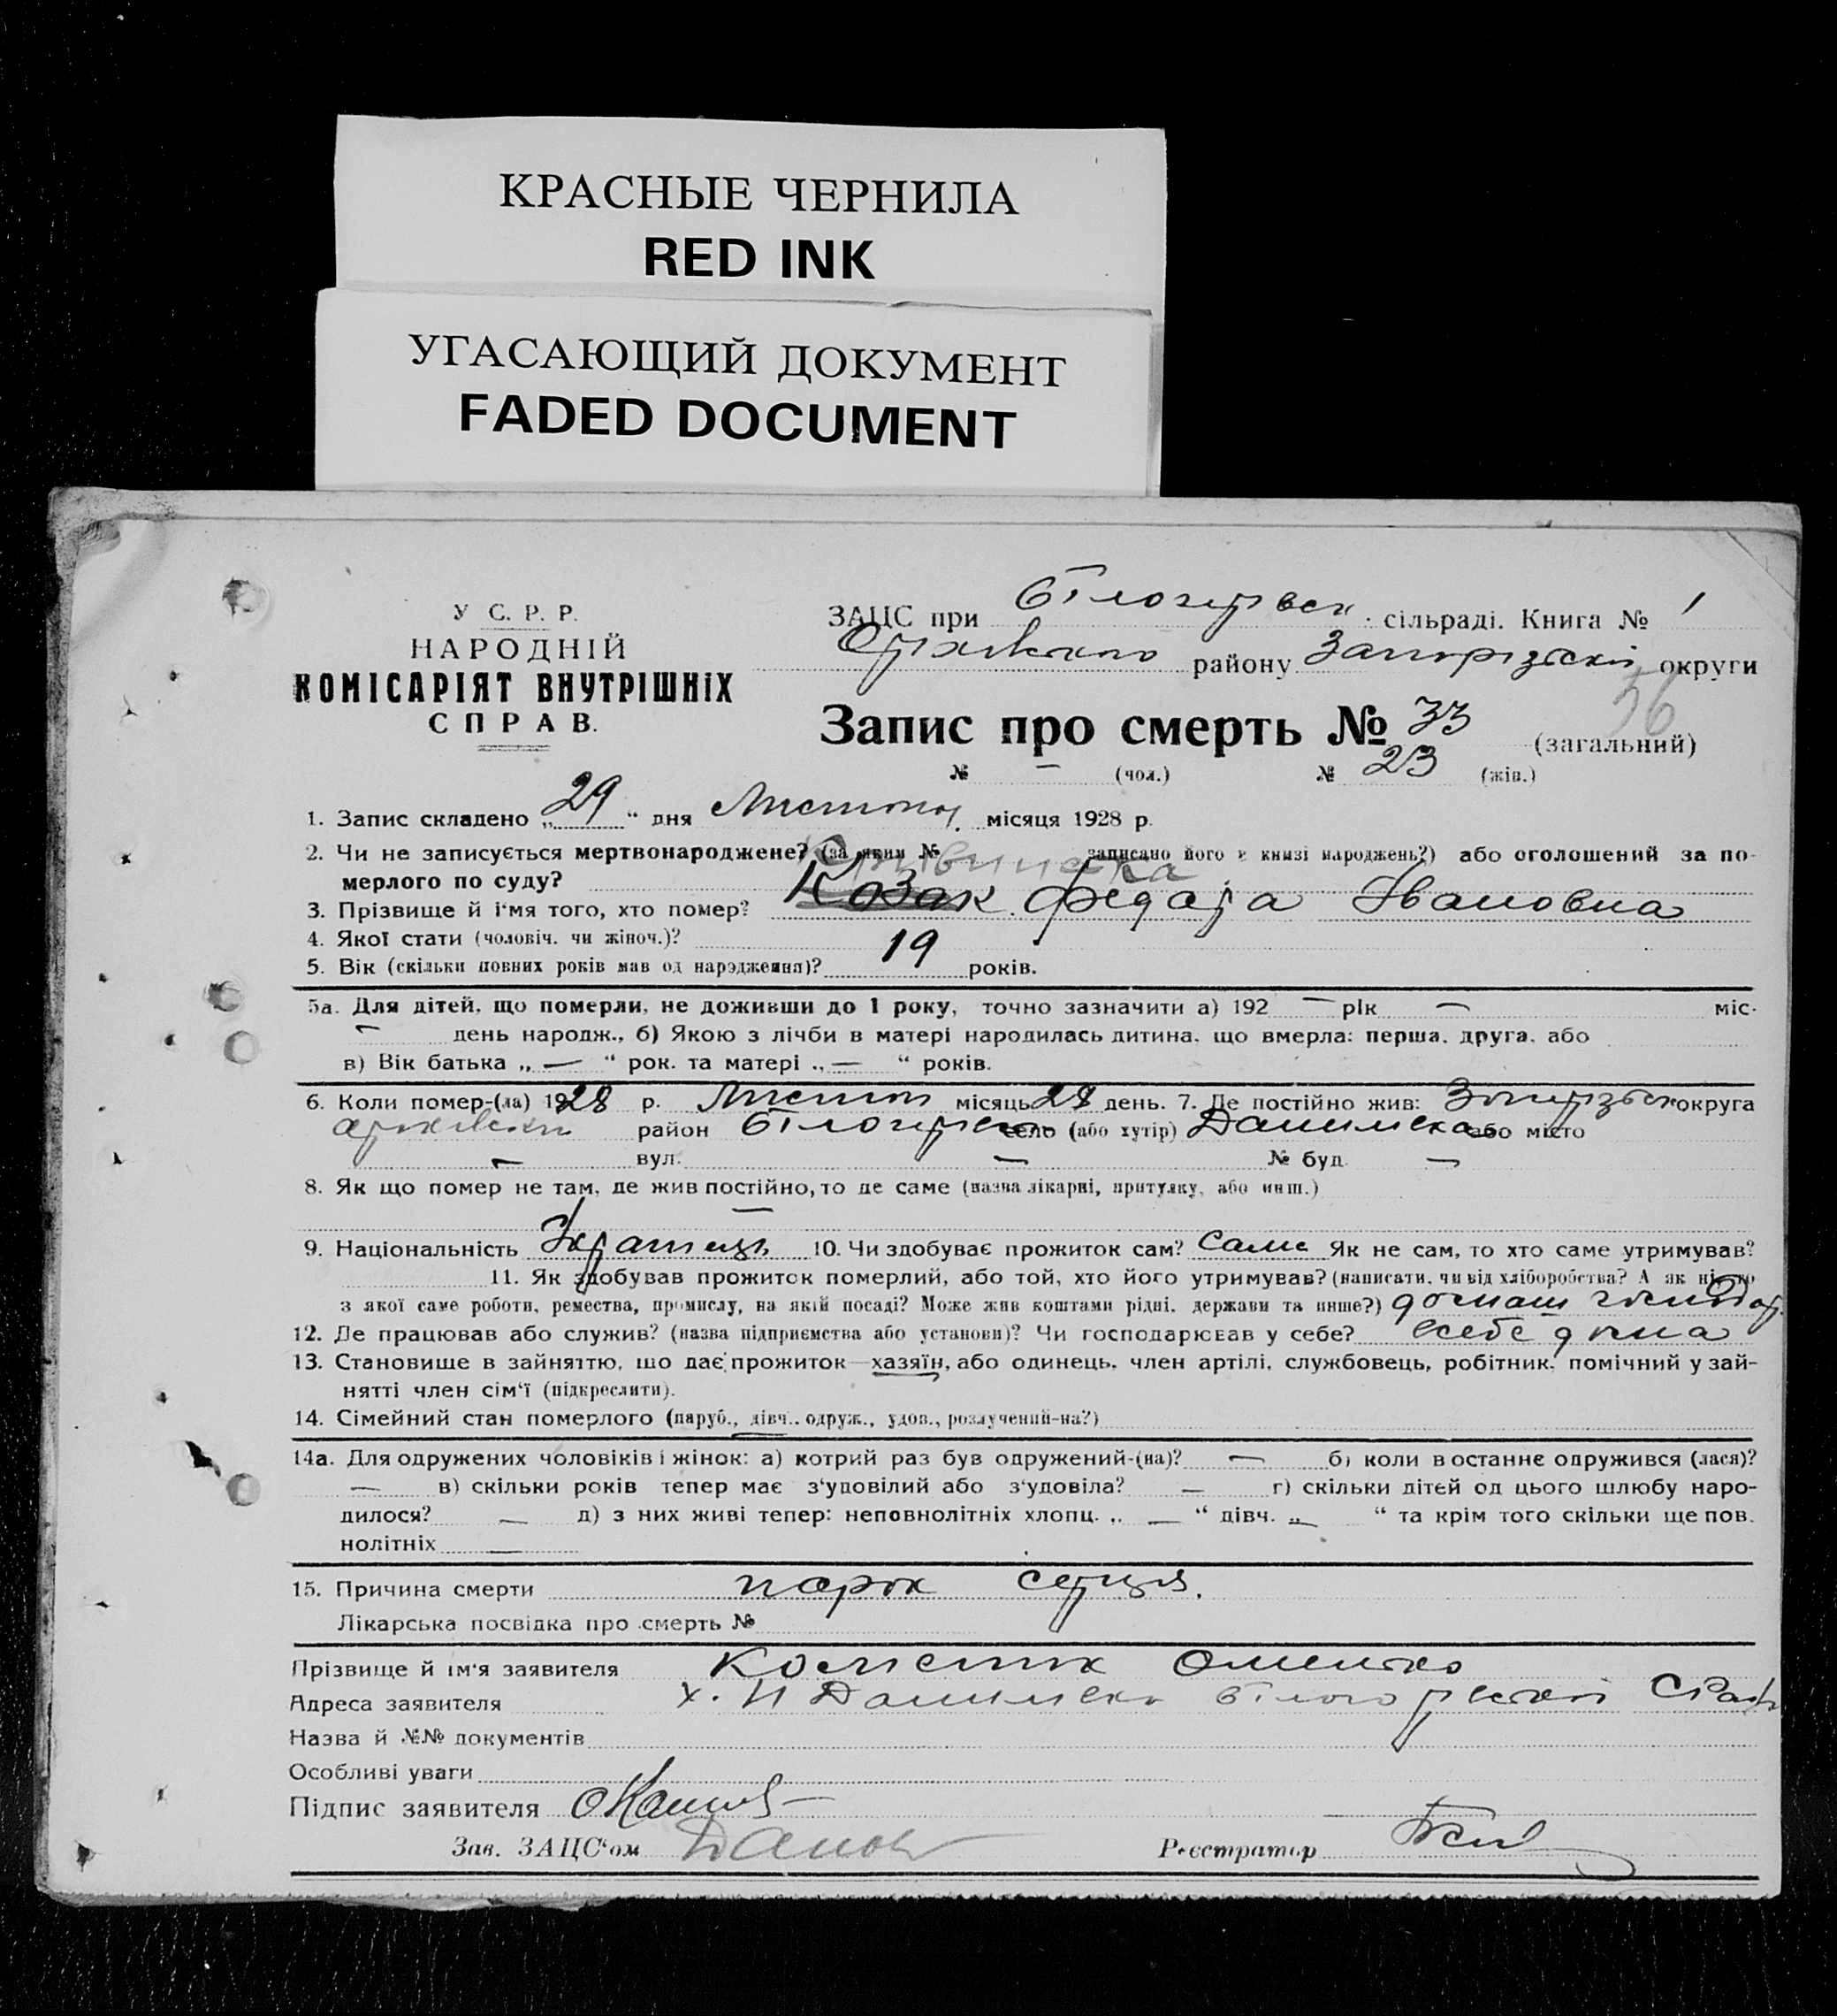 КРАСНЫЕ ЧЕРНИЛА
RED INK
УГАСАЮЩИЙ ДОКУМЕНТ
FADED DOCUMENT
У С. Р. Р.
НАРОДНІЙ
КОМІСАРІЯТ ВНУТРІШНІХ
СПРАВ.
ЗАЦС при Білогірськ. сільраді. Книга № 1
району округи
56
Запис про смерть № 33 (загальний)
№ — (чол.) № 23 (жін.)
1. Запис складено „29“ дня місяця 1928 р.
2. Чи не записується мертвонароджене? (за яким № записано його в книзі народжень?) або оголошений за по-
мерлого по суду?
3. Прізвище й і'мя того, хто помер? Козак Івановна
4. Якої стати (чоловіч. чи жіноч.)?
5. Вік (скільки повних років мав од народження)? 19 років.
5а. Для дітей, що померли, не доживши до 1 року, точно зазначити а) 192 — рік — міс.
— день народж., б) Якою з лічби в матері народилась дитина, що вмерла: перша, друга, або
в) Вік батька „ — “ рок. та матері „ — “ років.
6. Коли помер-(ла) 1928 р. місяць 28 день. 7. Де постійно жив: округа
район село (або хутір) або місто
— вул. — № буд. —
8. Як що помер не там, де жив постійно, то де саме (назва лікарні, притулку, або инш.)
—
9. Національність 10. Чи здобуває прожиток сам? Саме Як не сам, то хто саме утримував?
11. Як здобував прожиток померлий, або той, хто його утримував? (написати, чи від хліборобства? А як ні, то
з якої саме роботи, ремества, промислу, на якій посаді? Може жив коштами рідні, держави та инше?) домаш господар.
12. Де працював або служив? (назва підприємства або установи)? Чи господарював у себе? всебе дома
13. Становище в зайняттю, що дає прожиток—хазяїн, або одинець, член артілі, службовець, робітник, помічний у зай-
нятті член сім'ї (підкреслити).
14. Сімейний стан померлого (паруб., дівч., одруж., удов., розлучений-на?)
14а. Для одружених чоловіків і жінок: а) котрий раз був одружений-(на)? — б) коли востаннє одружився (лася)?
— в) скільки років тепер має з'удовілий або з'удовіла? — г) скільки дітей од цього шлюбу наро-
дилося? — д) з них живі тепер: неповнолітніх хлопц. „ — “ дівч. „ — “ та крім того скільки ще пов.
нолітніх —
15. Причина смерти порок серця.
Лікарська посвідка про смерть №
Прізвище й ім'я заявителя
Адреса заявителя х.
Назва й №№ документів
Особливі уваги
Підпис заявителя
Зав. ЗАЦС'ом
Реєстратор